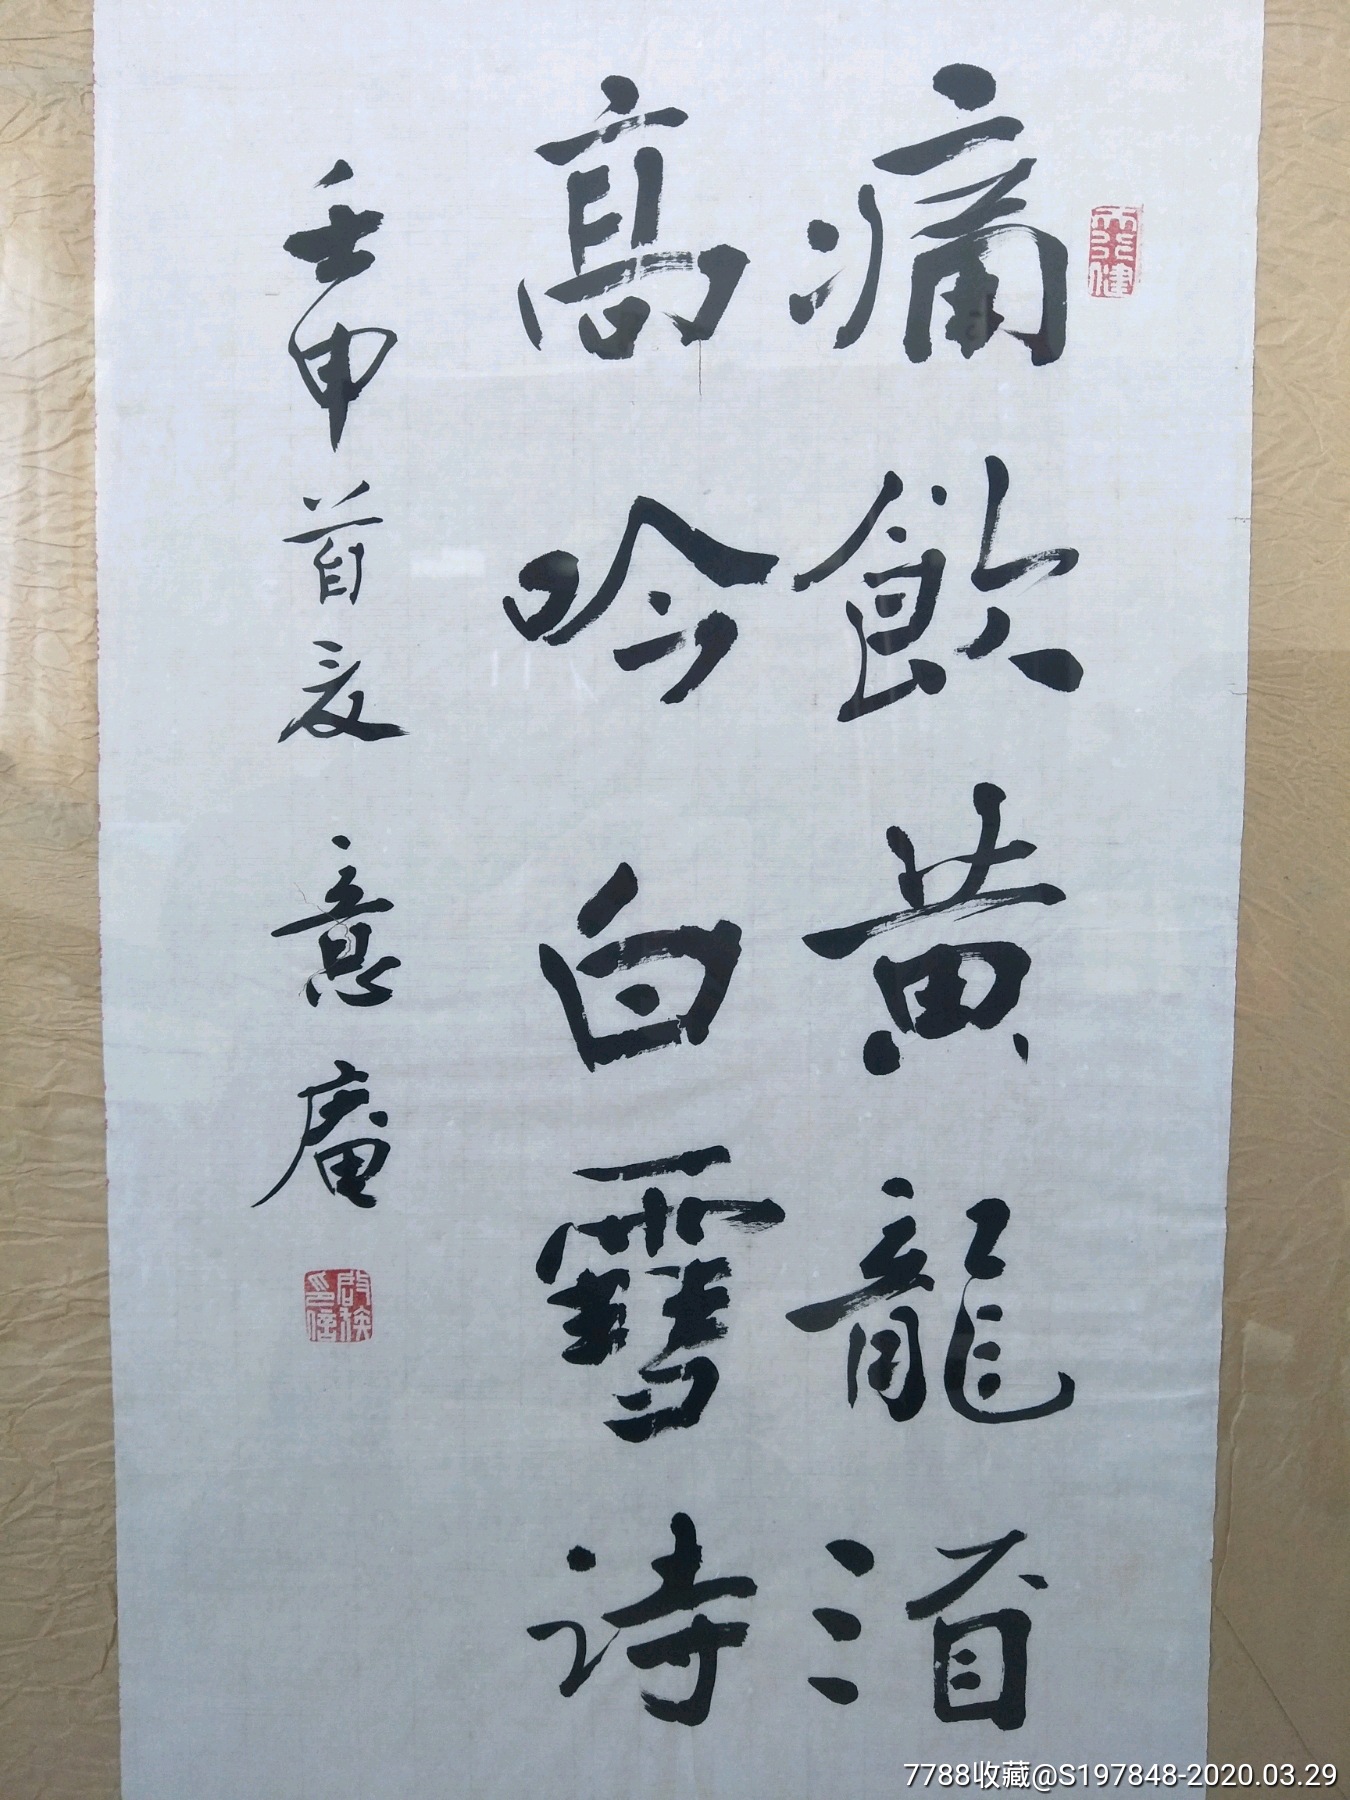 天行健
痛飲黄龍酒
高吟白雪诗
壬申首夏 意庵
7788收藏@S197848-2020.03.29